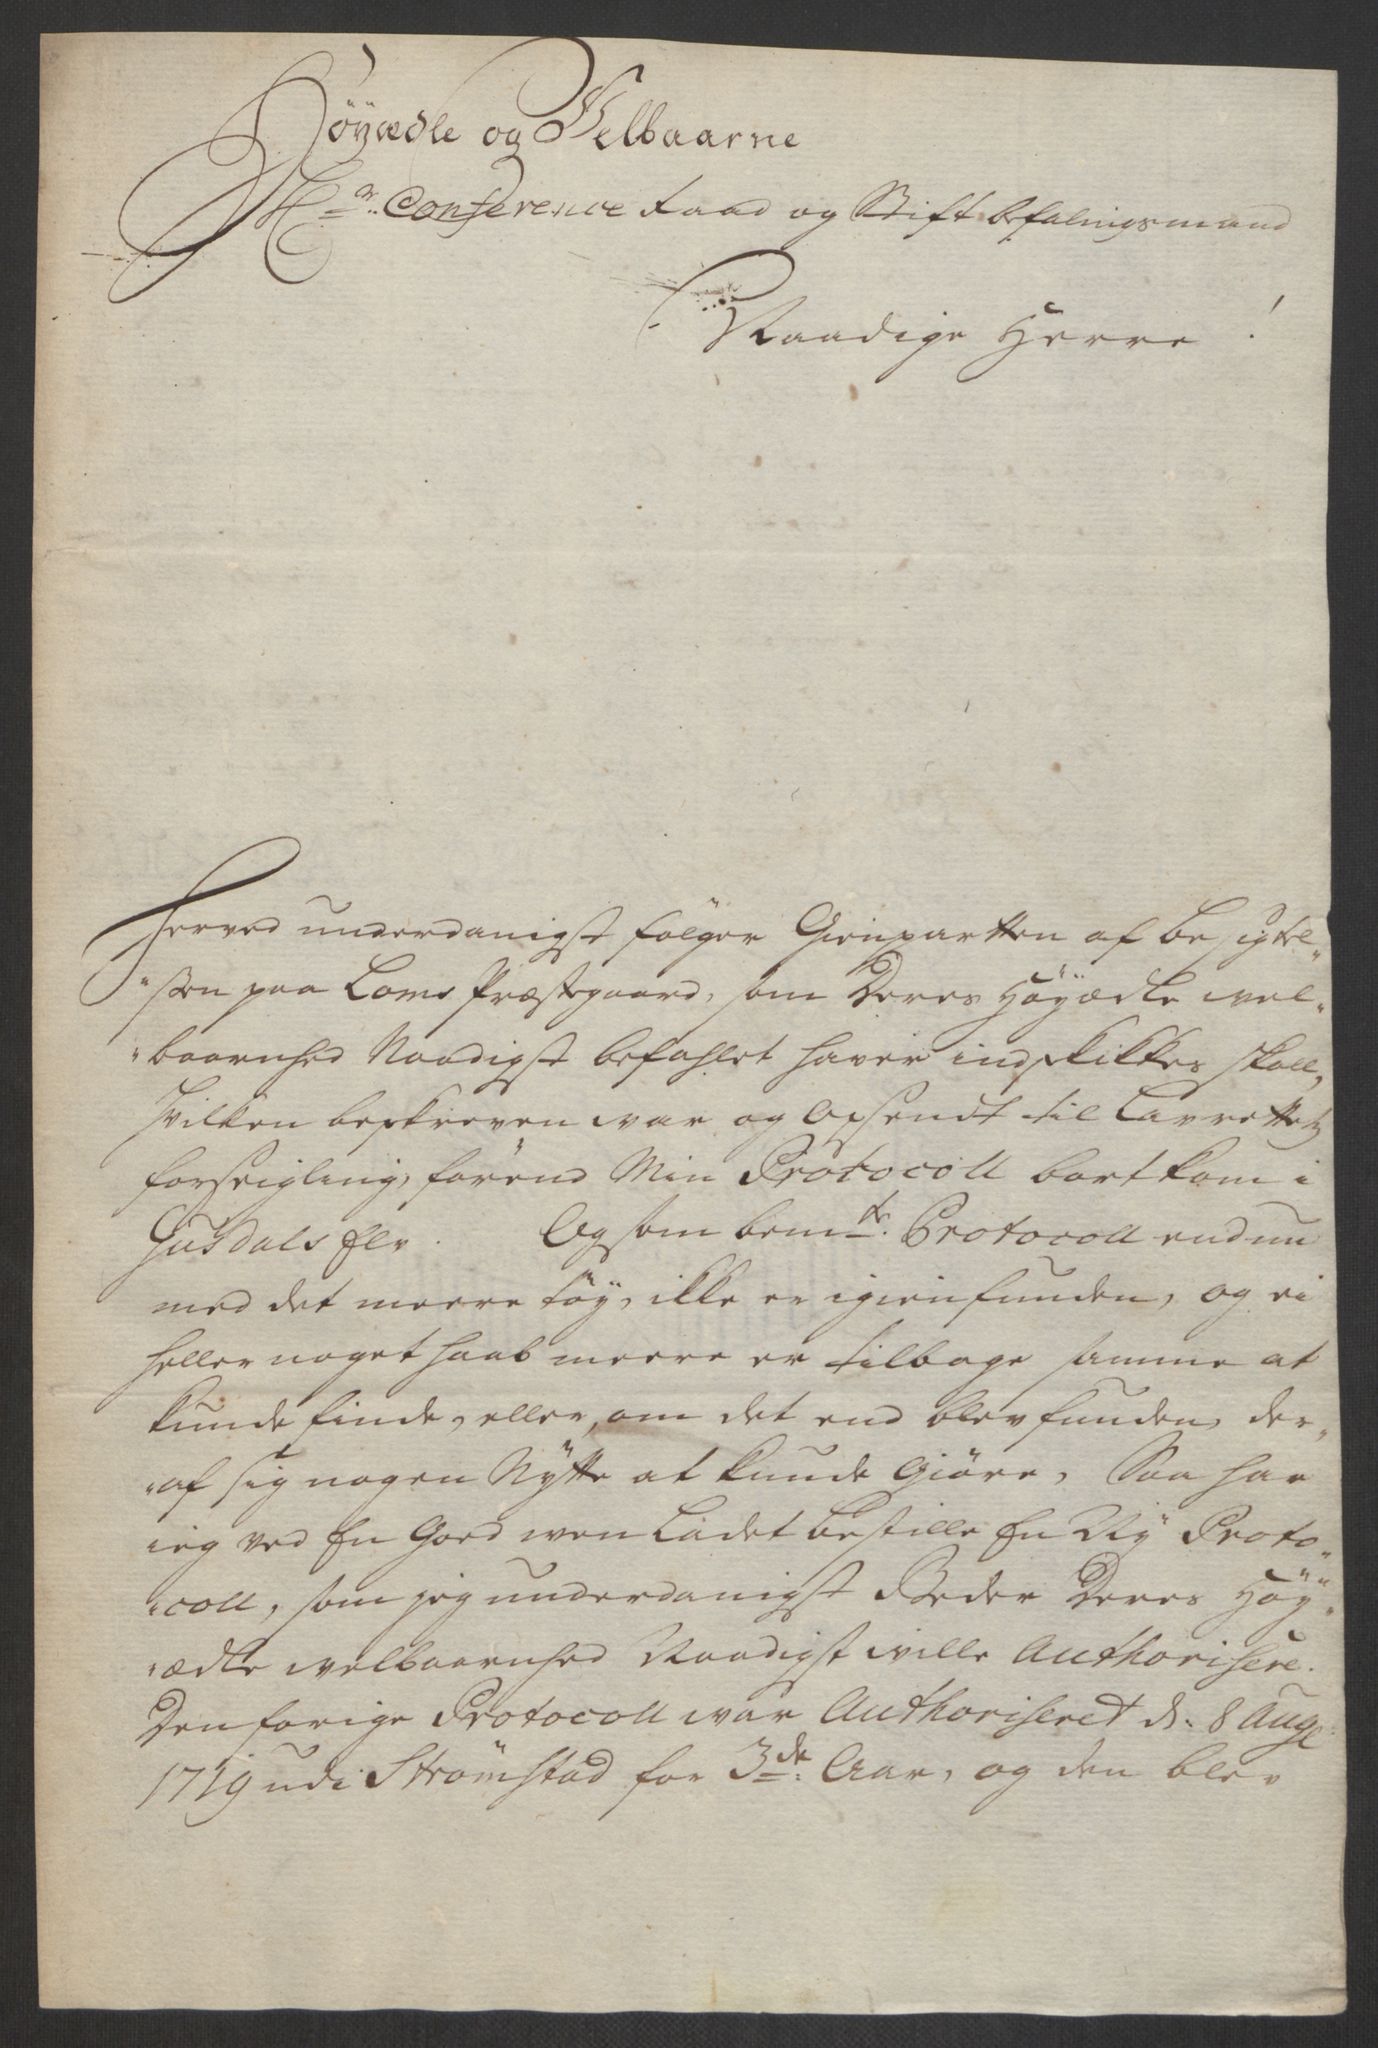 Höyædle og Velbaarne
Hr. Conference Raad og Stiftbefalingsmand
Naadige Herre!
Herved underdanigst følger Gienpartten af besigtel-
"ßen paa Loms Præstegaard, som Deres Höyædle wel-
"baarnhed Naadigst befahlet haver indskikkes skall,
hvilken beskreven war og Opsendt til Laurettetz
forseigling, förend Min Protocoll bortkom i
Gusdals Elv. Og som bemte. Protocoll endnu
med det meere töy, ikke er igienfunden, og ei
heller noget haab meere er tilbage samme at
kunde finde, eller, om det end blev funden, der-
"af sig nogen Nÿtte at kunde Giöre, Saa har
ieg ved En Goed wen Ladet bestille En Nÿ Proto-
"coll, som jeg underdanigst Beder Deres Höÿ-
"ædle welbaarnhed Naadigst wille Authorisere.
Den forige Protocoll war Authoriseret d. 8 Aug:
1719 udi Strömstad for 3de. Aar, og den blev